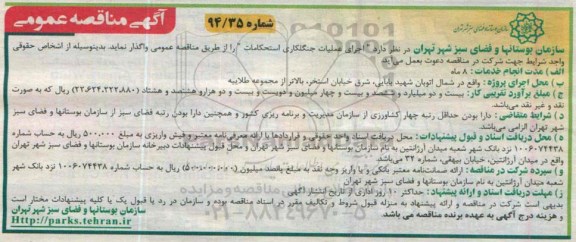 آگهی مناقصه عمومی
شماره ۹۴/۳۵
سازمان بوستانها و فضای سبز شهر تهران
سازمان بوستانها و فضای سبز شهر تهران در نظر دارد "اجرای عملیات جنگلکاری استحکامات" را از طریق مناقصه عمومی واگذار نماید. بدینوسیله از اشخاص حقوقی
واجد شرایط جهت شرکت در مناقصه دعوت بعمل می‌آید.
الف) مدت انجام خدمات: ۸ ماه
ب) محل اجرای پروژه: واقع در شمال اتوبان شهید بابایی، شرق خیابان استخر، بالاتر از مجموعه طلاییه
ج) مبلغ برآورد تقریبی کار: بیست و دو میلیارد و ششصد و بیست و چهار میلیون و دویست و بیست و دو هزار و هشتصد و هشتاد (۲۲،۶۲۴،۲۲۲،۸۸۰) ریال که به صورت
نقد و غیر نقد می‌باشد.
د) شرایط متقاضی: دارا بودن حداقل رتبه چهار کشاورزی از سازمان مدیریت و برنامه ریزی کشور و همچنین دارا بودن رتبه فضای سبز از سازمان بوستانها و فضای سبز
شهر تهران الزامی می‌باشد.
ه) محل دریافت اسناد و قبول پیشنهادات: محل دریافت اسناد واحد حقوقی و قراردادها با ارائه معرفی‌نامه معتبر و فیش واریزی به مبلغ ۵۰۰،۰۰۰ ریال به حساب شماره
۱۰۰۶۰۷۴۴۳۸ نزد بانک شهر شعبه میدان آرژانتین به نام سازمان بوستانها و فضای سبز شهر تهران و محل قبول پیشنهادات دبیرخانه سازمان بوستانها و فضای سبز شهر تهران
واقع در میدان آرژانتین، خیابان بیهقی، شماره ۳۲ می‌باشد.
و) سپرده شرکت در مناقصه: ارائه ضمانت‌نامه معتبر بانکی و یا واریز وجه نقد به مبلغ پانصد میلیون (۵۰۰،۰۰۰،۰۰۰) ریال به حساب شماره ۱۰۰۶۰۷۴۴۳۸ نزد بانک شهر
شعبه میدان آرژانتین به نام سازمان بوستانها و فضای سبز شهر تهران
ز) مهلت دریافت اسناد و ارائه پیشنهاد: حداکثر ۱۰ روز اداری از تاریخ انتشار آگهی
بدیهی است شرکت در مناقصه و ارائه پیشنهاد به منزله قبول شروط و تکالیف مقرر در اسناد مناقصه بوده و سازمان در رد یا قبول یک یا کلیه پیشنهادات مختار است
و هزینه درج آگهی به عهده برنده مناقصه می باشد.
سازمان بوستانها و فضای سبز شهر تهران
Http://parks.tehran.ir
۰۲۱-۸۸۳۴۹۶۷۰-۵